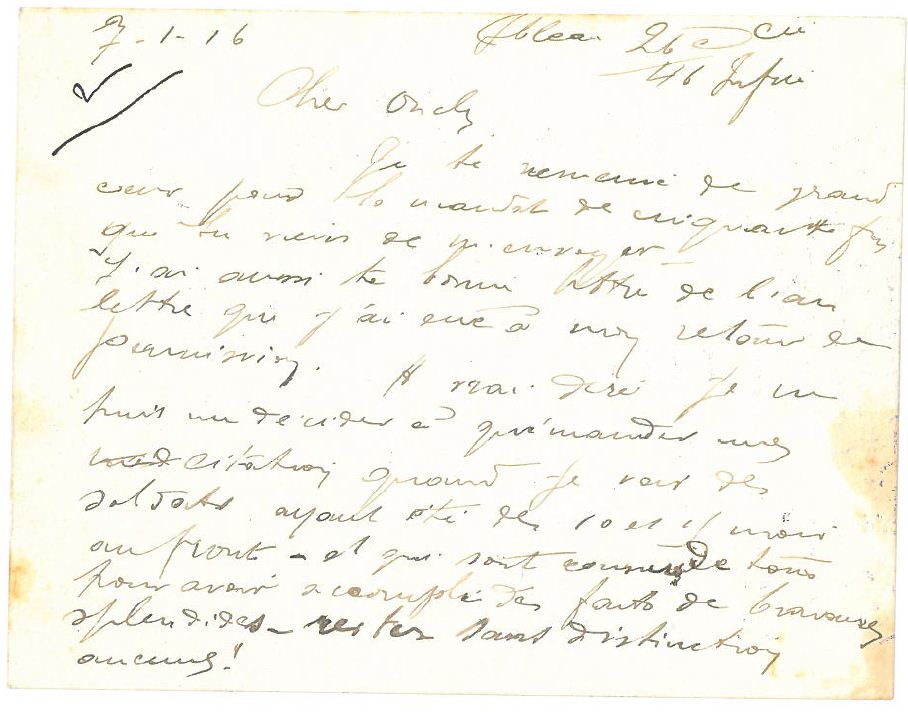 7-1-16
26e Cie
46 Infie
2
Cher Oncle
Je te remercie de grand
cœur pour le mandat de cinquante frs
que tu viens de m'envoyer
J'ai aussi ta bonne lettre de l'an
lettre que j'ai eue à mon retour de
permission. A vrai dire je ne
puis me décider à quémander une
citation quand je vois des
soldats ayant été des 10 et 11 mois
au front - et qui sont connus de tous
pour avoir accompli des faits de bravoure
splendides - rester sans distinction
aucune!